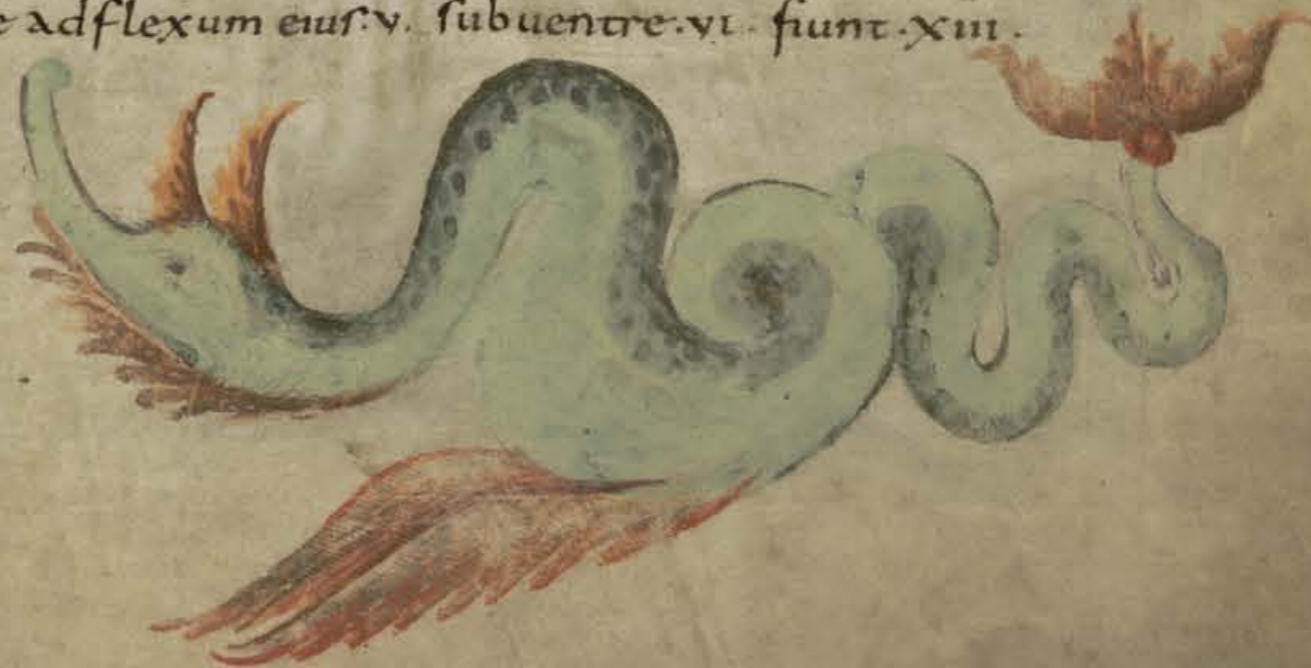 e adflexum eius. v. subuentre. vi. fiunt. xiii.